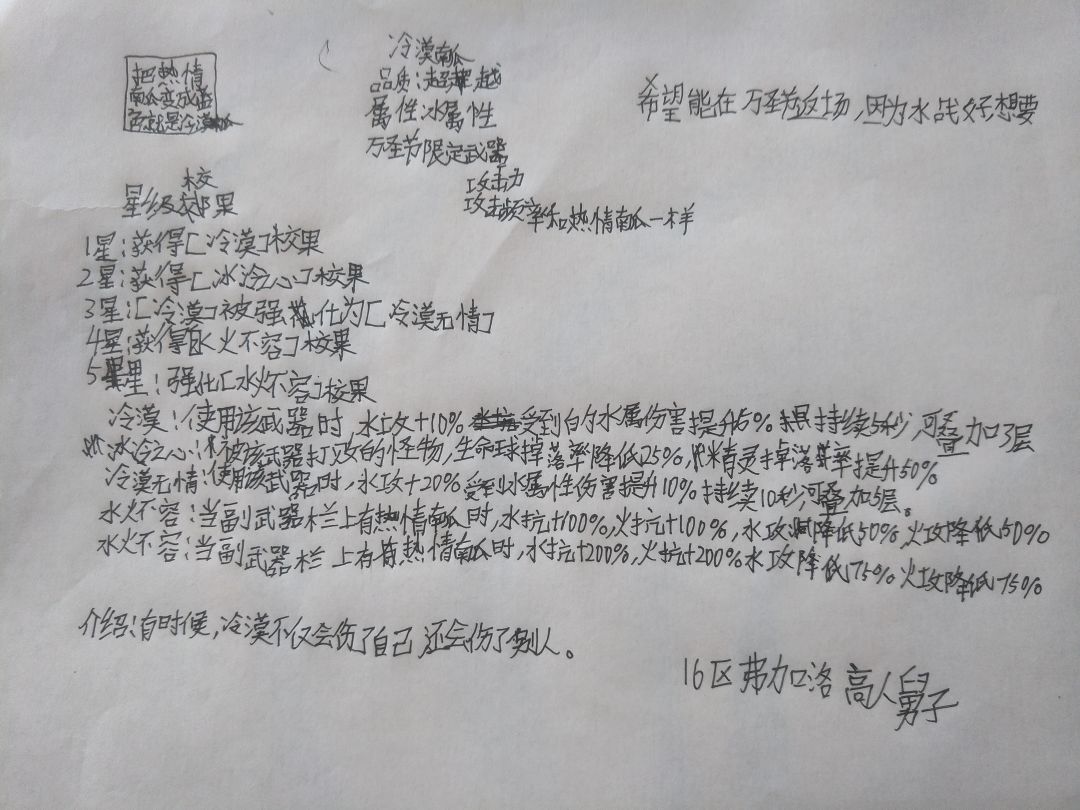 把热情
南瓜变成蓝
色就是冷漠南瓜
冷漠南瓜
品质:超越
属性:冰属性
万圣节限定武器
攻击力
攻击频率和热情南瓜一样
希望能在万圣节返场,因为水战好想要
星级校果
1星:获得[冷漠]校果
2星:获得[冰冷之心]校果
3星:[冷漠]被强化为[冷漠无情]
4星:获得[水火不容]校果
5星:强化[水火不容]校果
冷漠:使用该武器时,水攻+10%受到的水属伤害提升5%持续5秒,可叠加3层
冰冷之心:被该武器打攻的怪物,生命球掉落率降低25%,精灵掉落率提升50%
冷漠无情:使用该武器时,水攻+20%受到水属性伤害提升10%持续10秒可叠加5层。
水火不容:当副武器栏上有热情南瓜时,水抗+100%,火抗+100%,水攻降低50%,火攻降低50%
水火不容:当副武器栏上有热情南瓜时,水抗+200%,火抗+200%水攻降低75%火攻降低75%
介绍:有时候,冷漠不仅会伤了自己,还会伤了别人。
16区弗加洛高人舅子